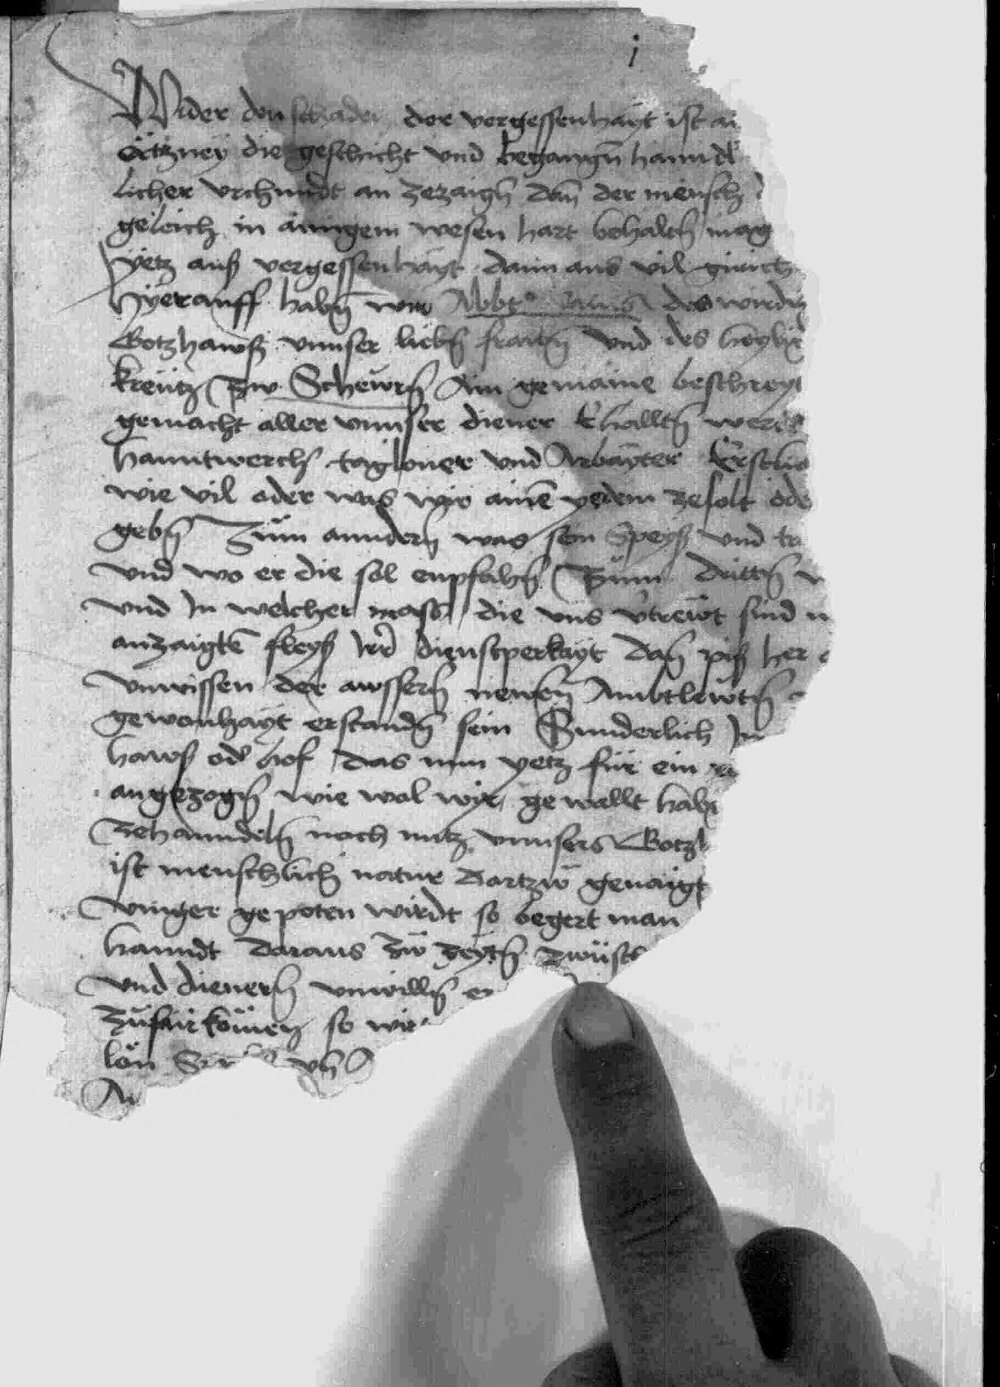 j
Wider den schaden der vergessenhayt ist
ertzney die geschicht und begangn hanndl
licher vrchundt an zezaign dan der mensch
geleich in ainigem wesen hart behaltn mag
yetz auß vergessenhayt dann aus vil
hyerauff habn wir Abbt des wirdi
Gotzhawß vnnser liebn frawn vnd des heylig
kreütz Zw Schewrn Ain gemaine beschrey
gemacht aller vnnser diener
hanntwerchs tagloner vnd Arbayter Erstli
wie vil oder was wir ainē yedem zesolt ode
gebn Zum anndern was sein Speyß vnd tr
vnd wo er die sol enpfahn Zum drittn
vnd In welcher mass die vns vtrewt sind
anzaigtē fleyß Irer dienstperkayt dan piß her
vnwissen der awssern newen Ambtlewtn
gewonhayt erstandn sein Sunderlich In
hawß oder hof das nun yetz für ein
angezogn wie wol wir gewellt hab
zehanndeln nach nutz vnnsers Gotzh
ist menschlich natur Dartzw genaigt
winger gepoten wirdt so begert man
hanndt Daraus zw zeytn zwüsch
vnd dienern vnwilln er
so wir
lon vn
An